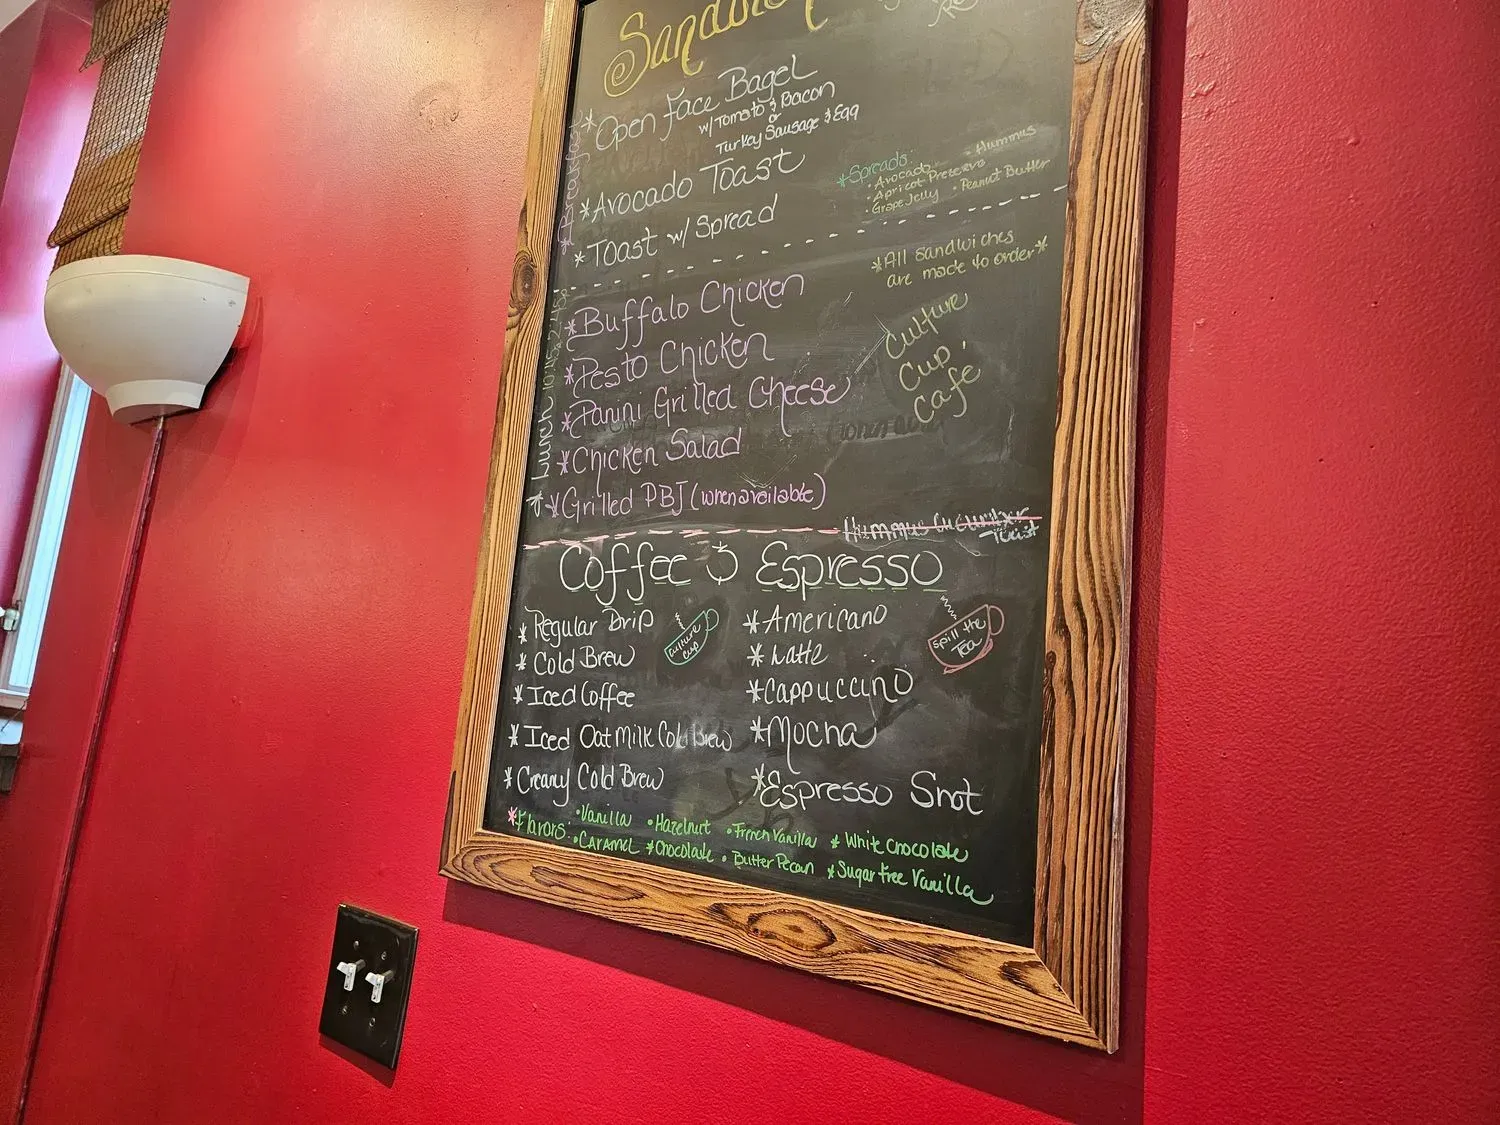 * Breakfast
* Open Face Bagel
w/Tomato & Bacon
or
Turkey Sausage & Egg
* Avocado Toast
* Toast w/ Spread
* Spreads:
• Avocado
• Hummus
• Apricot Preserve
• Grape Jelly
• Peanut Butter
* Lunch
* Buffalo Chicken
* Pesto Chicken
* Panini Grilled Cheese
* Chicken Salad
* Grilled PBJ (when available)
*All Sandwiches
are made to order*
Culture
Cup
Cafe
Hummus Cucumber
Toast
Coffee & Espresso
* Regular Drip
* Cold Brew
* Iced Coffee
* Iced Oatmilk Cold Brew
* Creamy Cold Brew
Culture
Cup
* Americano
* Latte
* Cappuccino
* Mocha
* Espresso Shot
Spill the
Tea
* Flavors: • Vanilla • Hazelnut • French Vanilla * White Chocolate
• Caramel * Chocolate • Butter Pecan * Sugar Free Vanilla